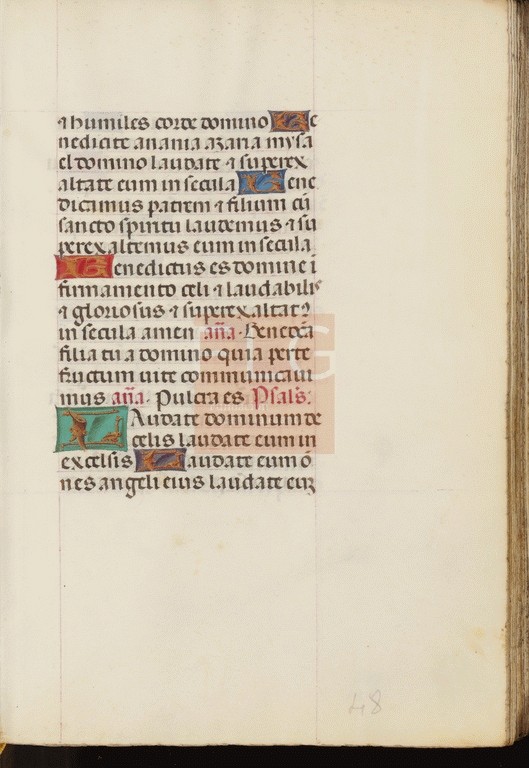 ⁊ humiles corde domino Be
nedicite anania azaria mysa
el domino laudate ⁊ superex
altate eum in secula Bene
dicamus patrem ⁊ filium cū
sancto spiritu laudemus ⁊ su
perexaltemus eum in secula
Benedictus es domine ī
firmamento celi ⁊ laudabilis
⁊ gloriosus ⁊ superexaltatꝰ
in secula amen añā. Benedcā
filia tu a domino quia per te
fructum vite communicaui
mus añā. Pulcra es Psalꝰs:
Laudate dominum de
celis laudate eum in
excelsis Laudate eum ō
nes angeli eius laudate euꝫ
48